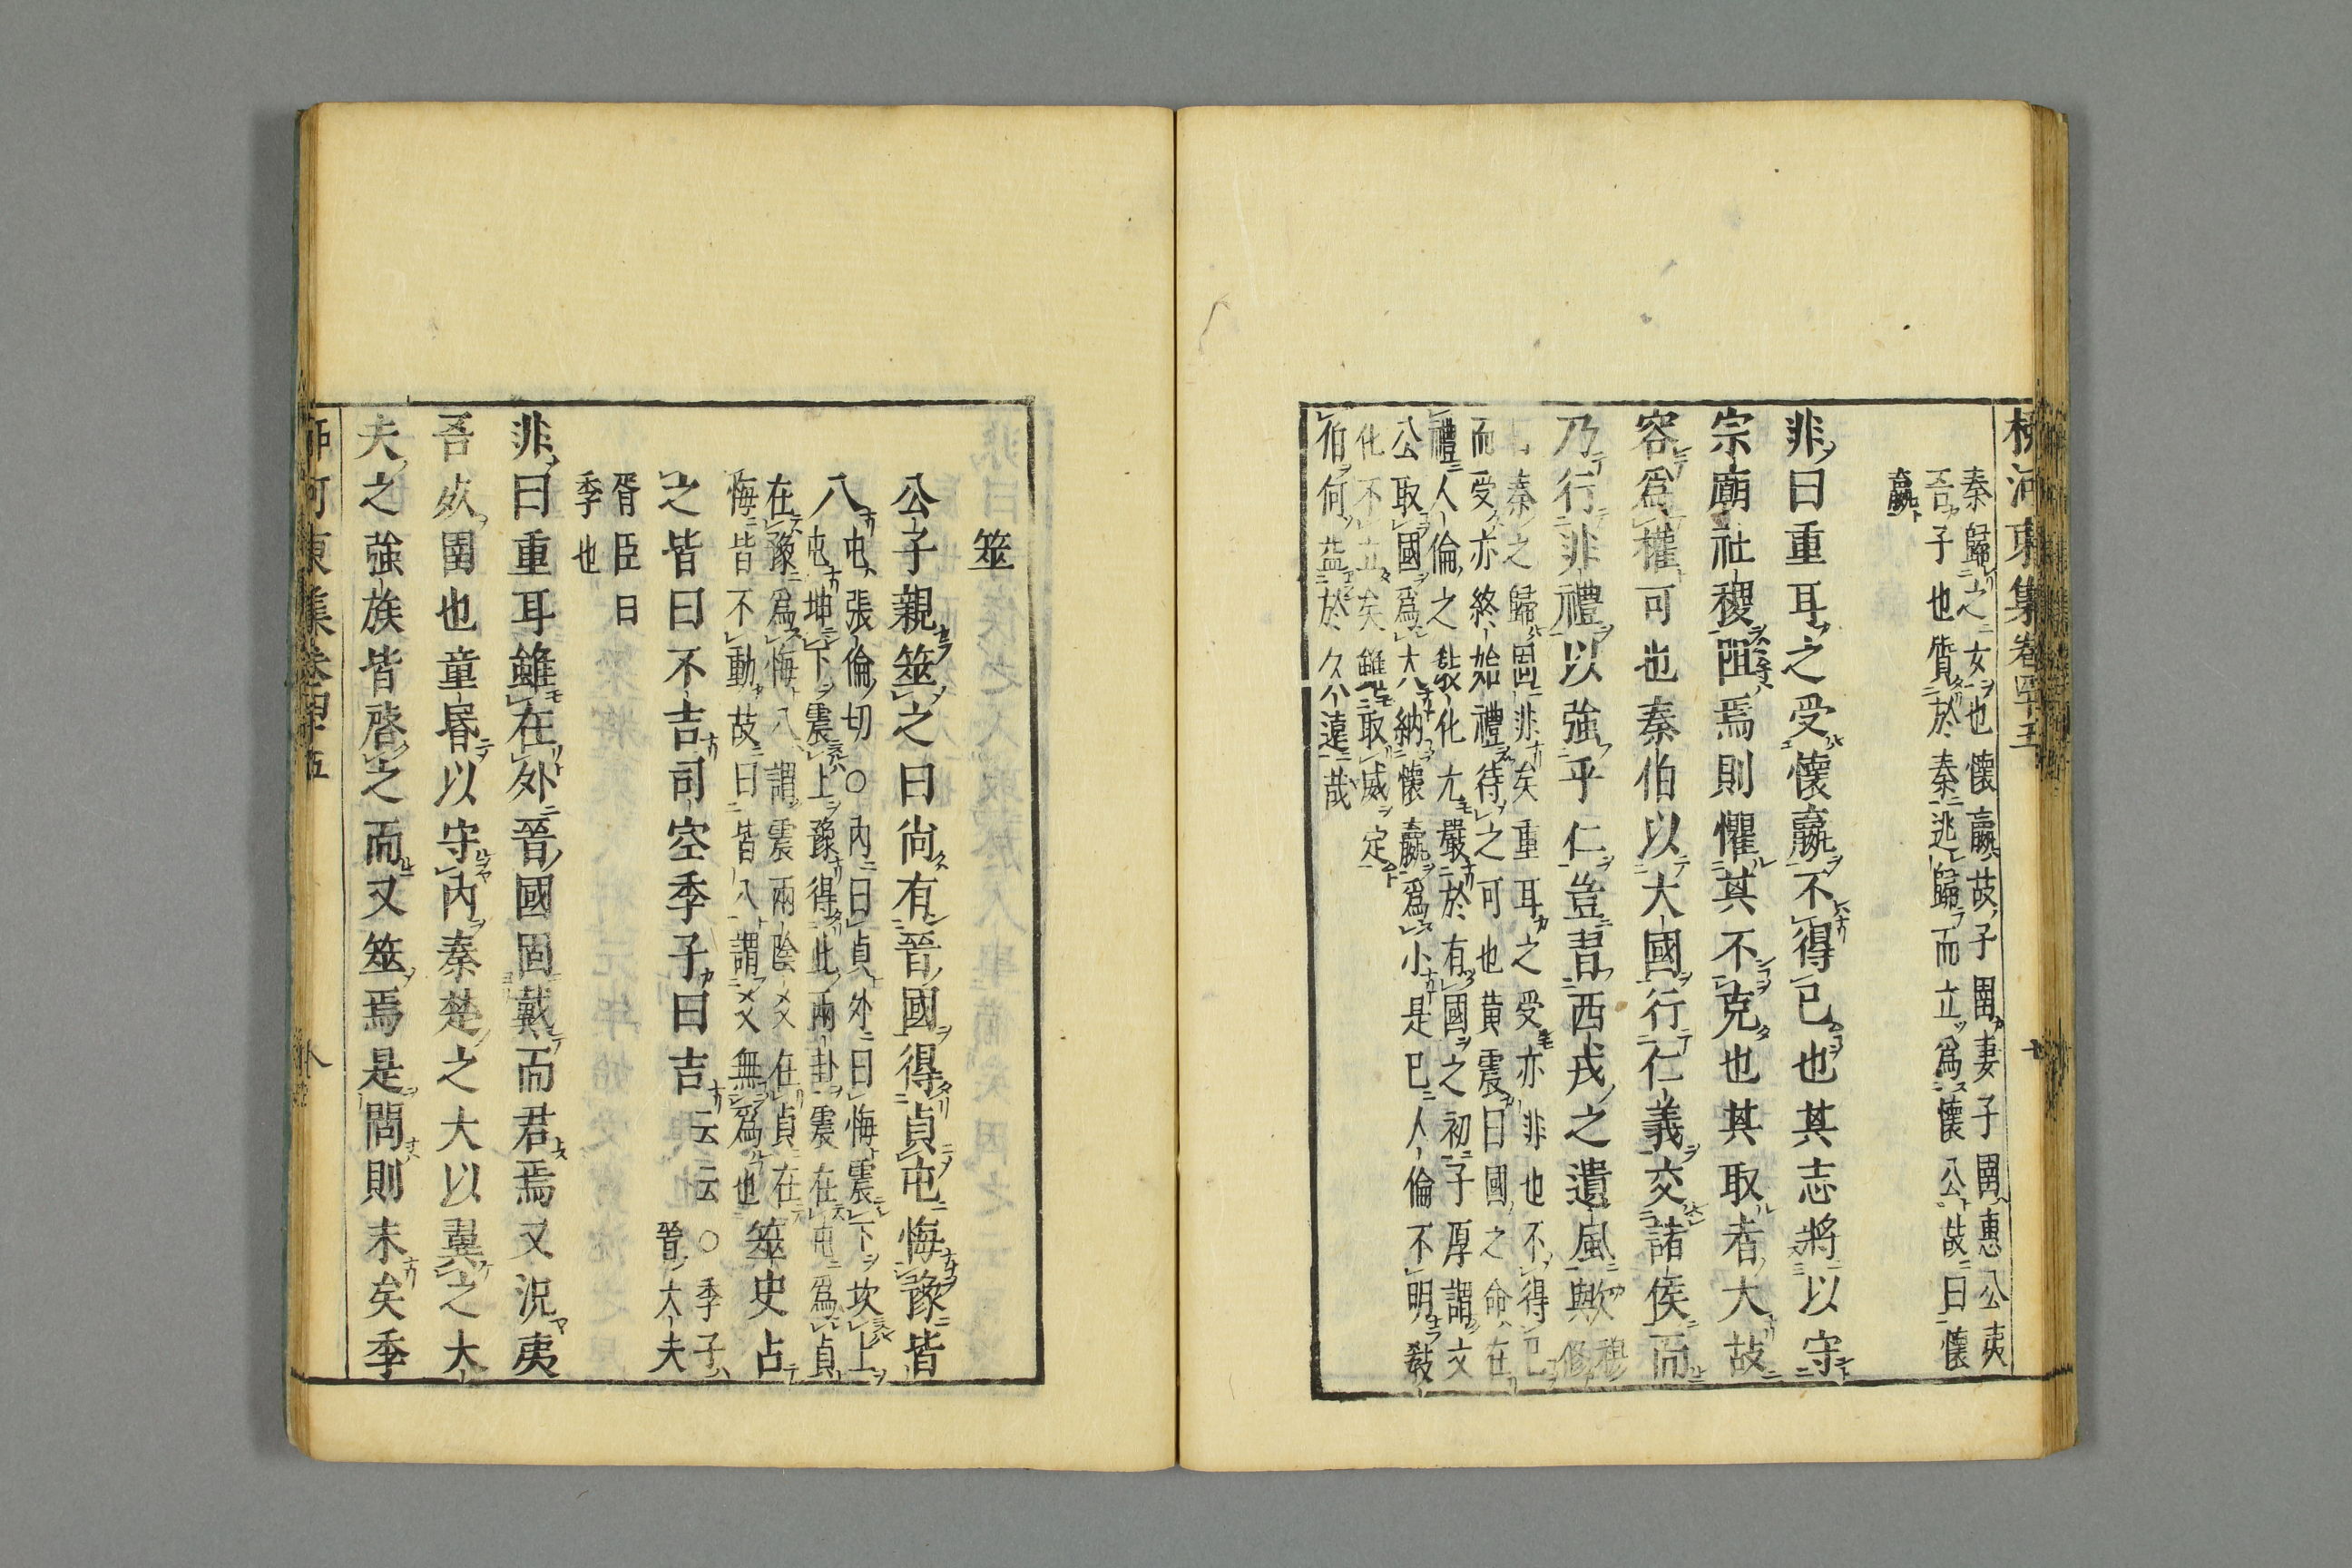 柳河東集卷四十五
七
秦歸之女也懷嬴故子圉妻子圉惠公夷
吾子也質於秦逃歸而立爲懷公故曰懷
嬴
非曰重耳之受懷嬴不得已也其志將以守
宗廟社稷阻焉則懼其不克也其取者大故
容爲權可也秦伯以大國行仁義交諸侯而
乃行非禮以強乎仁豈習西戎之遺風歟
穆
秦之歸固非矣重耳之受亦非也不得已
而受亦終始禮待之可也黄震曰國之命在
禮人倫之敎化尤嚴於有國之初子厚謂文
公取國爲大納懷嬴爲小是已人倫不明敎
化不立矣雖取威定
伯何益於久遠哉
筮
公子親筮之曰尚有晉國得貞屯悔豫皆
八
屯張倫切○內曰貞外曰悔震下坎上
屯坤下震上豫得此兩卦震在屯爲貞
在豫爲悔八謂震兩陰爻在貞在
悔皆不動故曰皆八謂爻無爲也
筮史占
之皆曰不吉司空季子曰吉云云
○季子
晉大夫
胥臣臼
季也
非曰重耳雖在外晉國固戴而君焉又況夷
吾死圉也童昏以守內秦楚之大以翼之大
夫之強族皆啓之而又筮焉是問則末矣季
柳河東集卷四十五
八